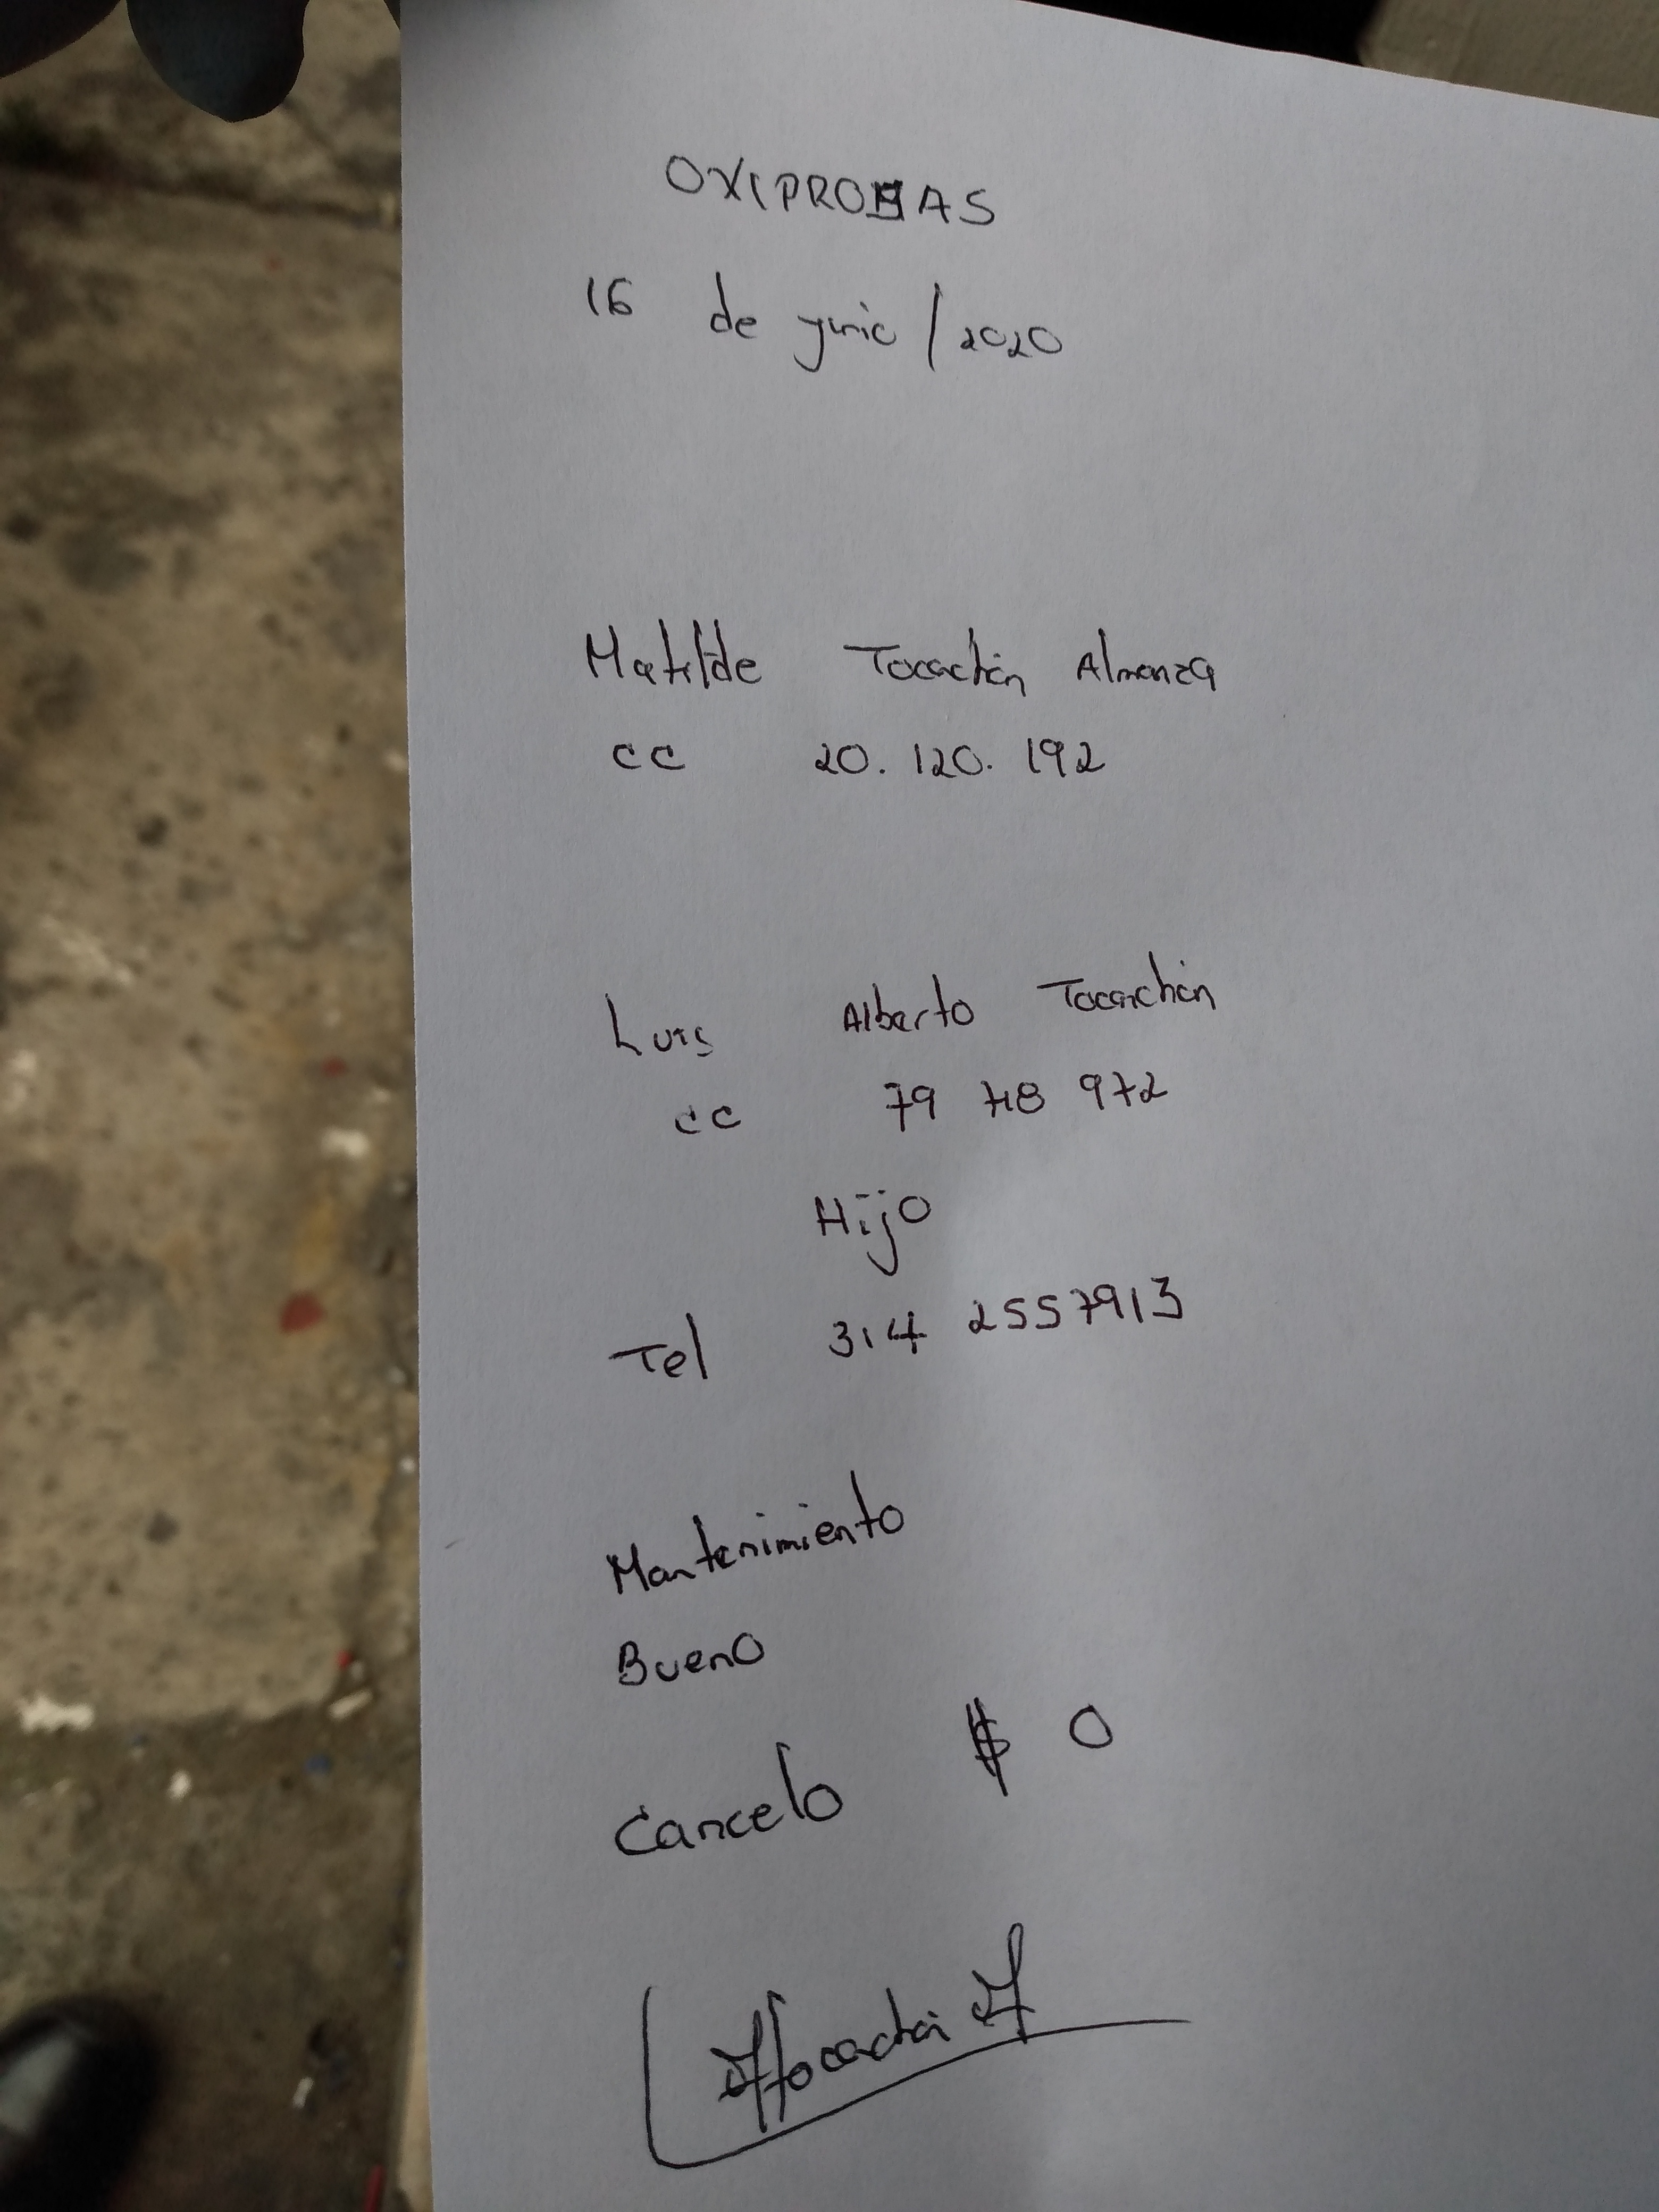 OXIPROHAS
16 de junio / 2020
Matilde Tocachón Almanza
CC 20.120.192
Luis Alberto Tocachón
CC 79 748 972
Hijo
Tel 314 2557913
Mantenimiento
Bueno
Cancelo $ 0